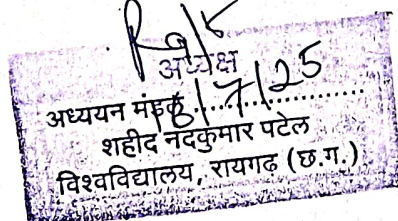 अध्यक्ष
अध्ययन मंडल ..................
8/7/25
शहीद नंदकुमार पटेल
विश्वविद्यालय, रायगढ़ (छ.ग.)